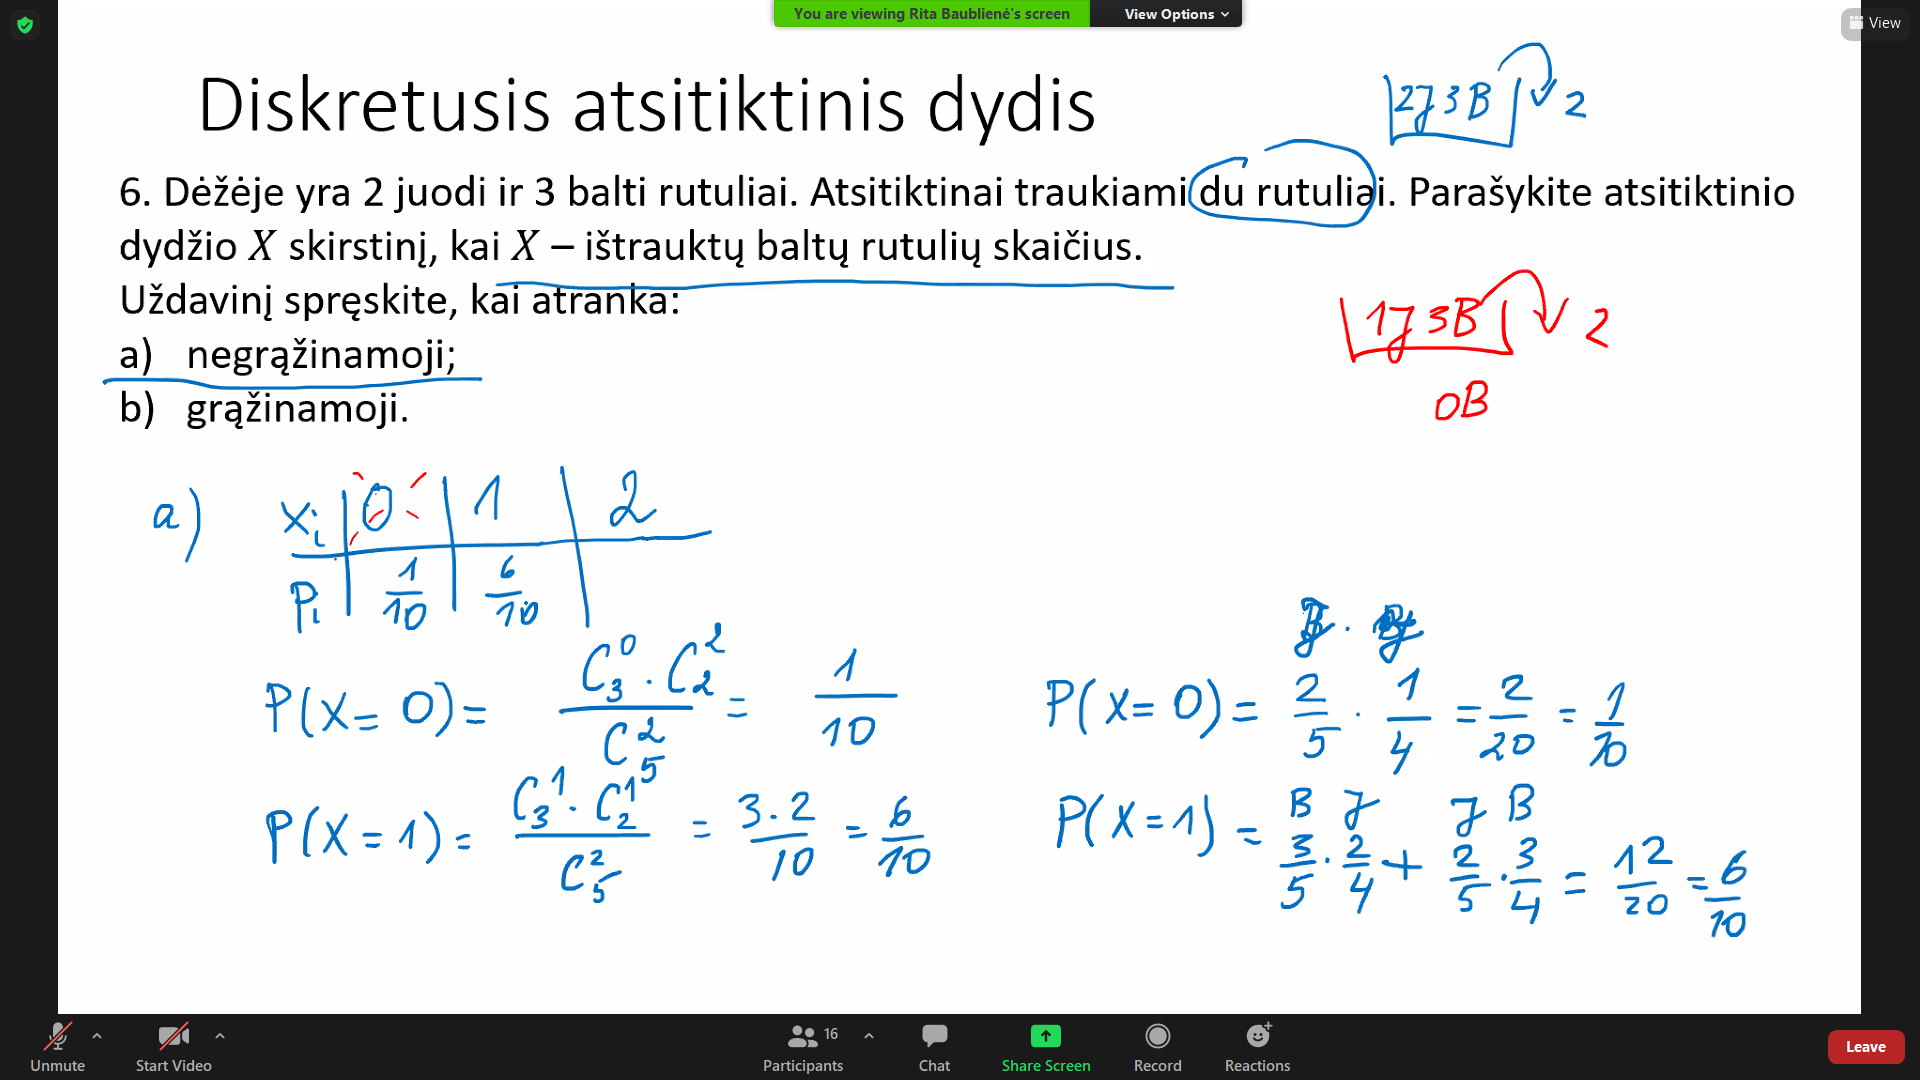 You are viewing Rita Baublienė's screen
View Options
View
Diskretusis atsitiktinis dydis
2J 3B 2
6. Dėžėje yra 2 juodi ir 3 balti rutuliai. Atsitiktinai traukiami du rutuliai. Parašykite atsitiktinio
dydžio X skirstinį, kai X – ištrauktų baltų rutulių skaičius.
Uždavinį spręskite, kai atranka:
1J 3B 2
a) negrąžinamoji;
0B
b) grąžinamoji.
a) xᵢ | 0 | 1 | 2
Pᵢ | 1/10 | 6/10 |
P(X=0) = C₃⁰ · C₂² / C₅² = 1/10
P(X=0) = 2/5 · 1/4 = 2/20 = 1/10
P(X=1) = C₃¹ · C₂¹ / C₅² = 3·2/10 = 6/10
B J J B
P(X=1) = 3/5 · 2/4 + 2/5 · 3/4 = 12/20 = 6/10
Unmute
Start Video
Participants 16
Chat
Share Screen
Record
Reactions
Leave